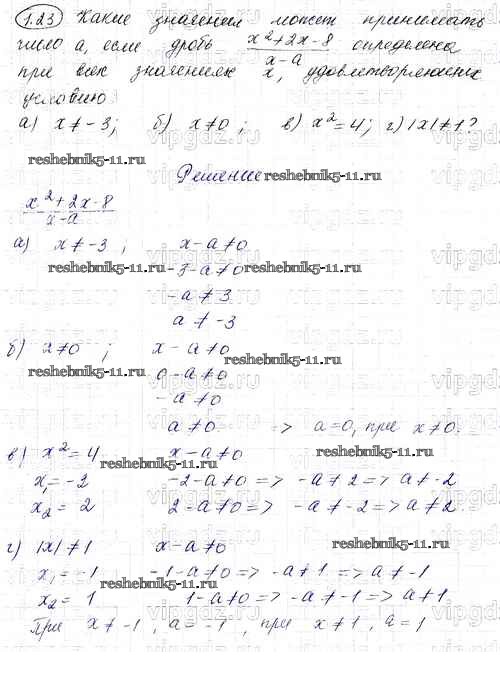 1.23 Какие значения может принимать
число a, если дробь x²+2x-8 / x-a определена
при всех значениях x, удовлетворяющих
условию
а) x≠-3; б) x≠0; в) x²=4; г) |x|≠1?
reshebnik5-11.ru
Решение reshebnik5-11.ru
x²+2x-8 / x-a
а) x≠-3; x-a≠0
reshebnik5-11.ru -3-a≠0 reshebnik5-11.ru
-a≠3
a≠-3
б) x≠0; x-a≠0 reshebnik5-11.ru
reshebnik5-11.ru 0-a≠0
-a≠0
a≠0 => a=0, при x≠0.
в) x²=4 x-a≠0 reshebnik5-11.ru
reshebnik5-11.ru
x₁=-2 -2-a≠0 => -a≠2 => a≠-2
x₂=2 2-a≠0 => -a≠-2 => a≠2
reshebnik5-11.ru
г) |x|≠1 x-a≠0 reshebnik5-11.ru
x₁=-1 -1-a≠0 => -a≠1 => a≠-1
reshebnik5-11.ru
x₂=1 1-a≠0 => -a≠-1 => a≠1
При x≠-1, a=-1, при x≠1, a=1
vipgdz.ru